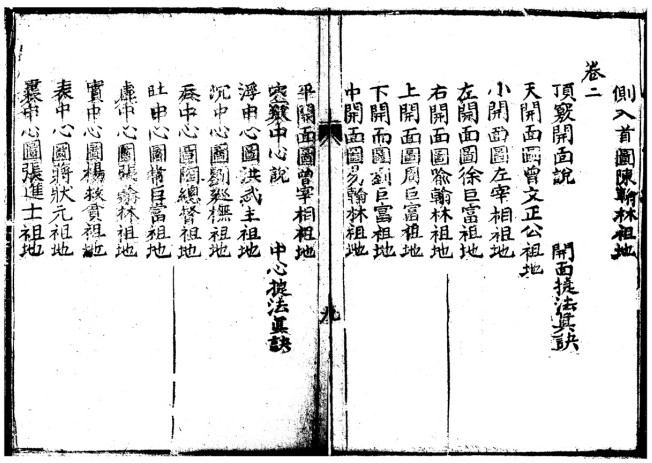 側入首圖陳翰林祖地
卷二
頂竅開面說 開面掟法真訣
天開面圖曾文正公祖地
小開面圖左宰相祖地
左開面圖徐巨富祖地
右開面圖喻翰林祖地
上開面圖周巨富祖地
下開面圖劉巨富祖地
中開面圖易翰林祖地
九
平開面圖曾宰相祖地
空竅中心說 中心掟法真訣
浮中心圖洪武主祖地
沉中心圖劉巡撫祖地
吞中心圖陶總督祖地
吐中心圖 巨富祖地
虛中心圖張翰林祖地
實中心圖楊拔貢祖地
表中心圖蔣狀元祖地
裏中心圖張進士祖地